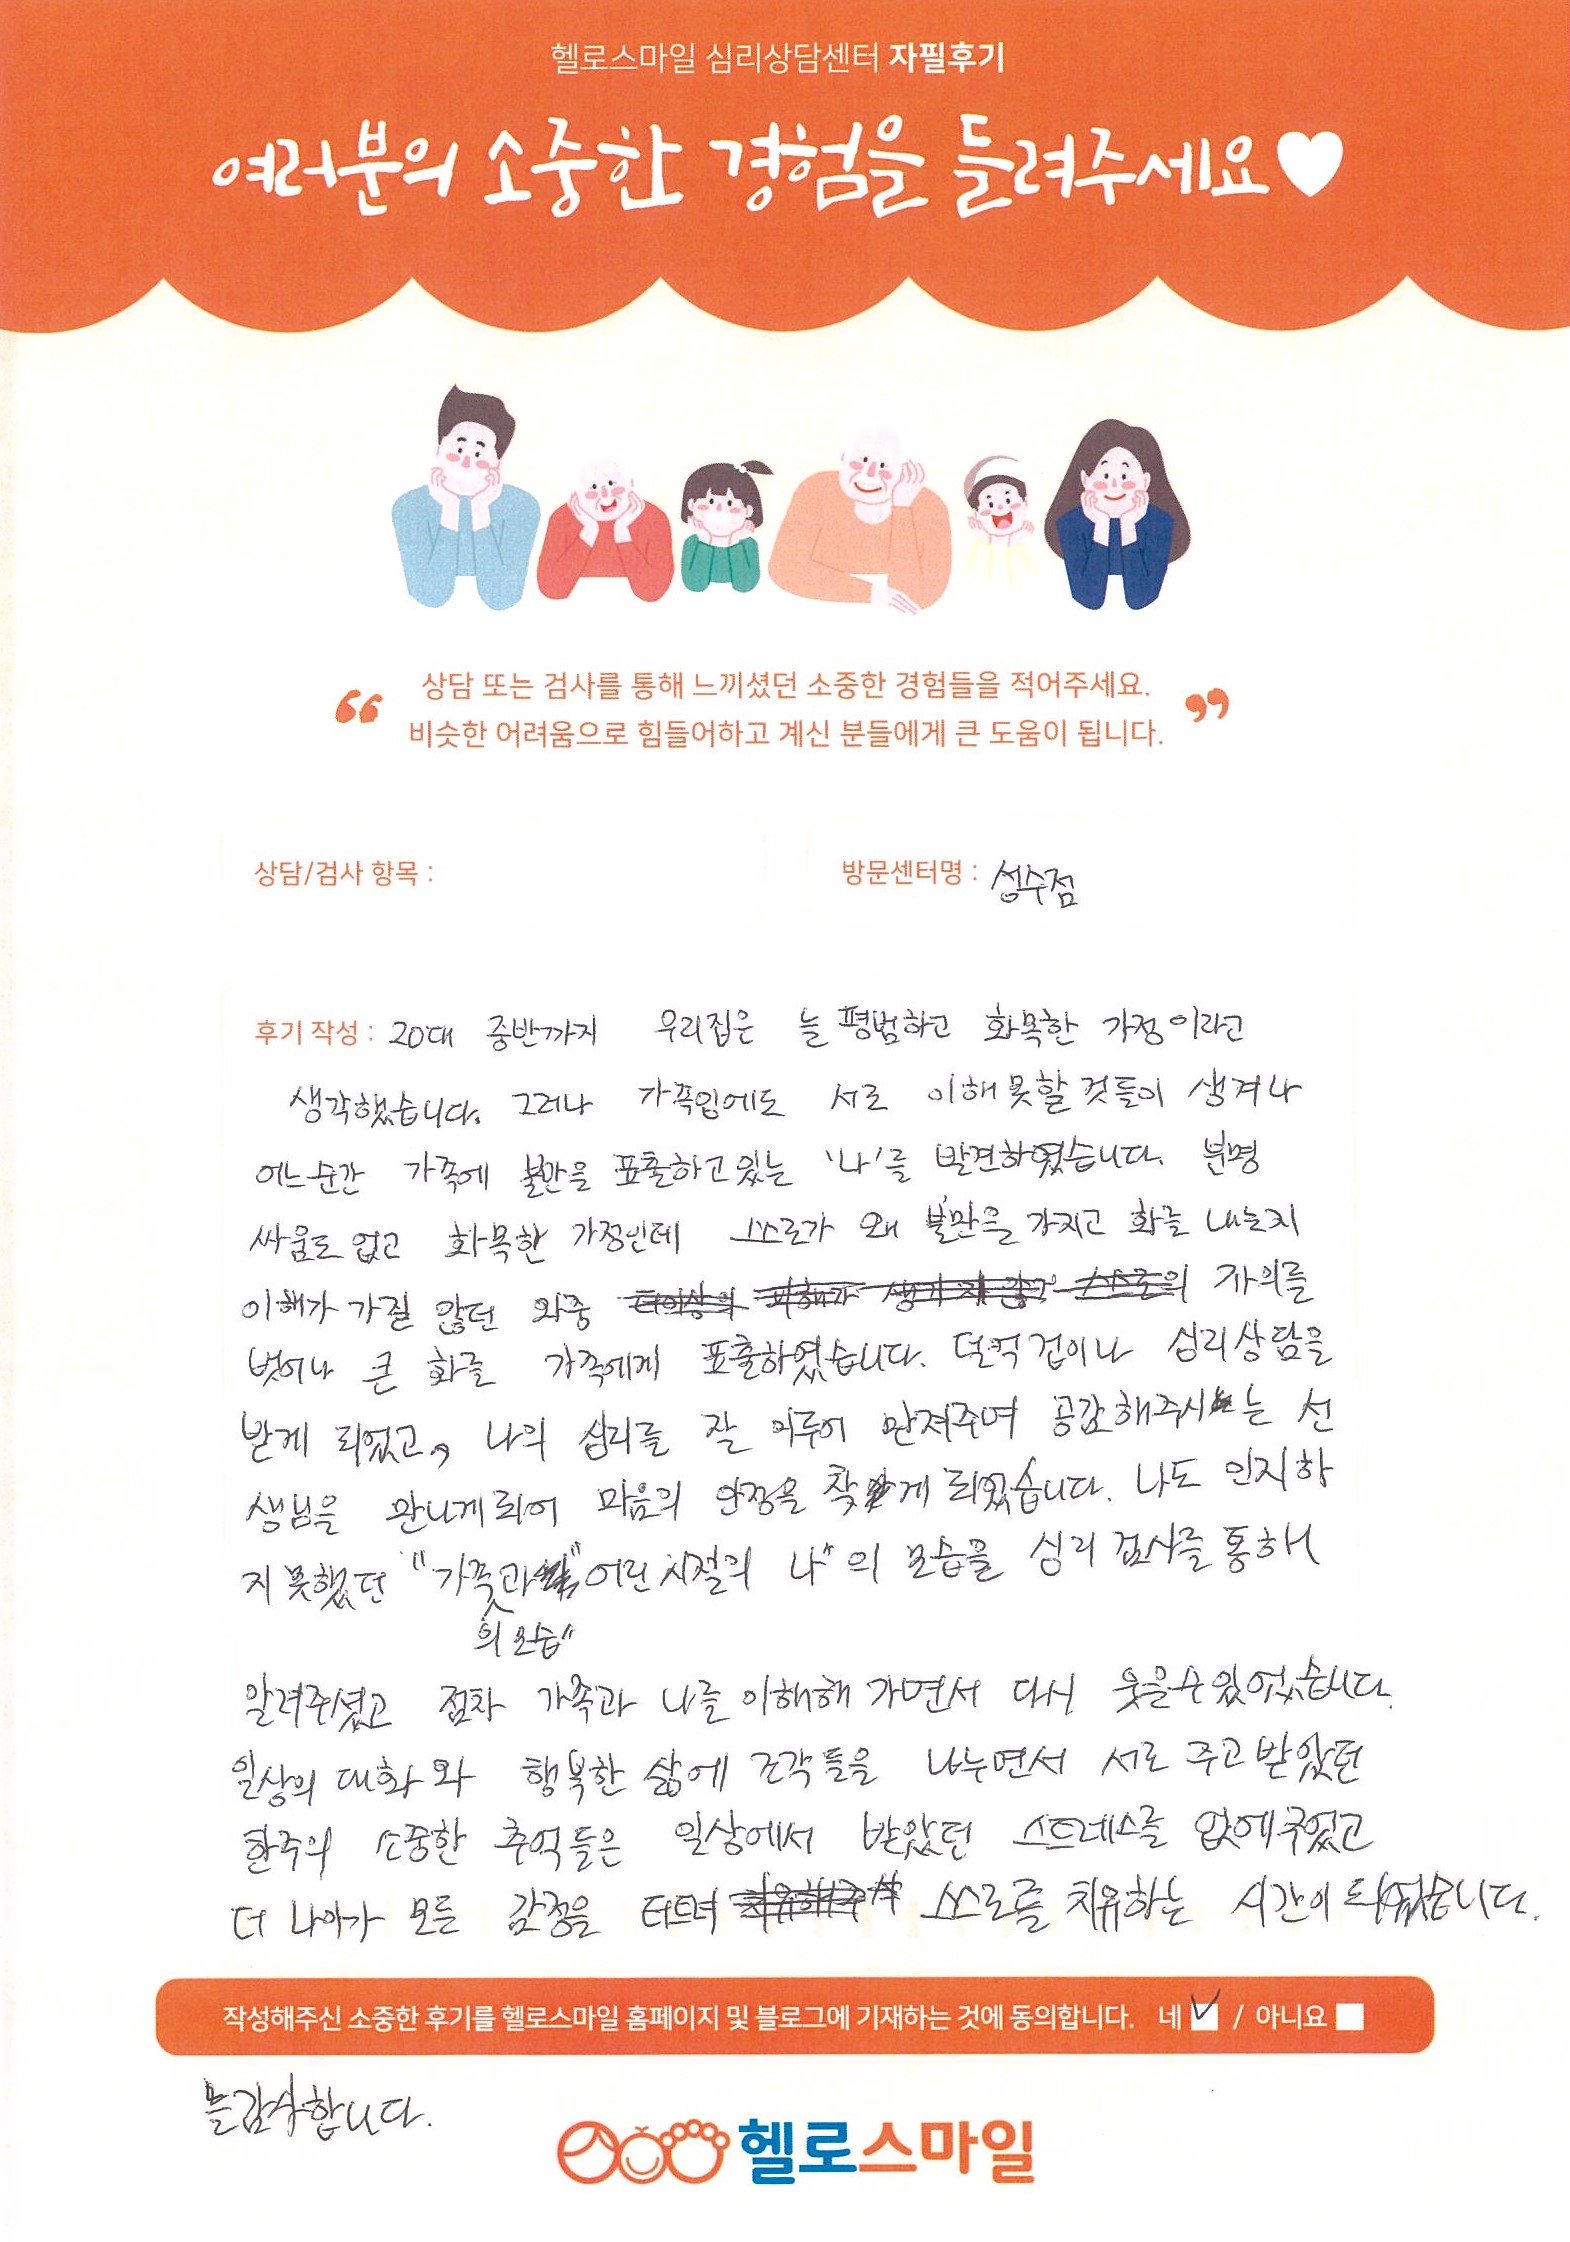 헬로스마일 심리상담센터 자필후기
여러분의 소중한 경험을 들려주세요
상담 또는 검사를 통해 느끼셨던 소중한 경험들을 적어주세요.
비슷한 어려움으로 힘들어하고 계신 분들에게 큰 도움이 됩니다.
상담/검사 항목 :
방문센터명 : 성수점
후기 작성 : 20대 중반까지 우리집은 늘 평범하고 화목한 가정이라고
생각했습니다. 그러나 가족임에도 서로 이해 못할 것들이 생겨나
어느순간 가족에 불만을 표출하고 있는 '나'를 발견하였습니다. 분명
싸움도 없고 화목한 가정인데 스스로가 왜 불만을 가지고 화를 내는지
이해가 가질 않던 와중 자의를
벗어나 큰 화를 가족에게 표출하였습니다. 덜컥 겁이나 심리상담을
받게 되었고, 나의 심리를 잘 어루어 만져주며 공감해주시는 선
생님을 만나게 되어 마음의 안정을 찾게 되었습니다. 나도 인지하
지 못했던 "가족과 "어린시절의 나"의 모습을 심리 검사를 통해
의 모습"
알려주셨고 점차 가족과 나를 이해해 가면서 다시 웃을 수 있었습니다.
일상의 대화와 행복한 삶에 조각들을 나누면서 서로 주고 받았던
한주의 소중한 추억들은 일상에서 받았던 스트레스를 없애주었고
더 나아가 모든 감정을 터트려 스스로를 치유하는 시간이 되었습니다.
작성해주신 소중한 후기를 헬로스마일 홈페이지 및 블로그에 기재하는 것에 동의합니다. 네 / 아니요
늘 감사합니다.
헬로스마일